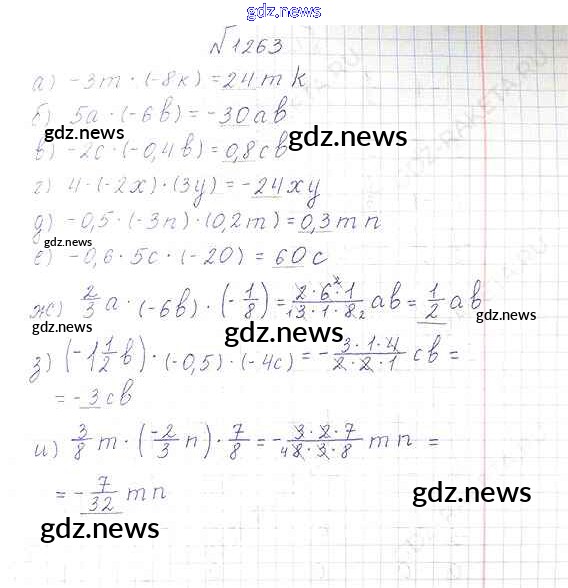 gdz.news
№1263
а) -3m · (-8k) = 24mk
б) 5a · (-6b) = -30ab
gdz.news
gdz.news
в) -2c · (-0,4b) = 0,8cb
г) 4 · (-2x) · (3y) = -24xy
д) -0,5 · (-3n) · (0,2m) = 0,3mn
gdz.news
е) -0,6 · 5c · (-20) = 60c
ж) 2/3 a · (-6b) · (-1/8) = 2·6·1/3·1·8 ab = 1/2 ab
gdz.news
gdz.news
gdz.news
з) (-1 1/2 b) · (-0,5) · (-4c) = - 3·1·4/2·2·1 cb =
= -3cb
и) 3/8 m · (-2/3 n) · 7/8 = - 3·2·7/8·3·8 mn =
= - 7/32 mn
gdz.news
gdz.news
GDZ-RAKETA.RU
GDZ-RAKETA.RU